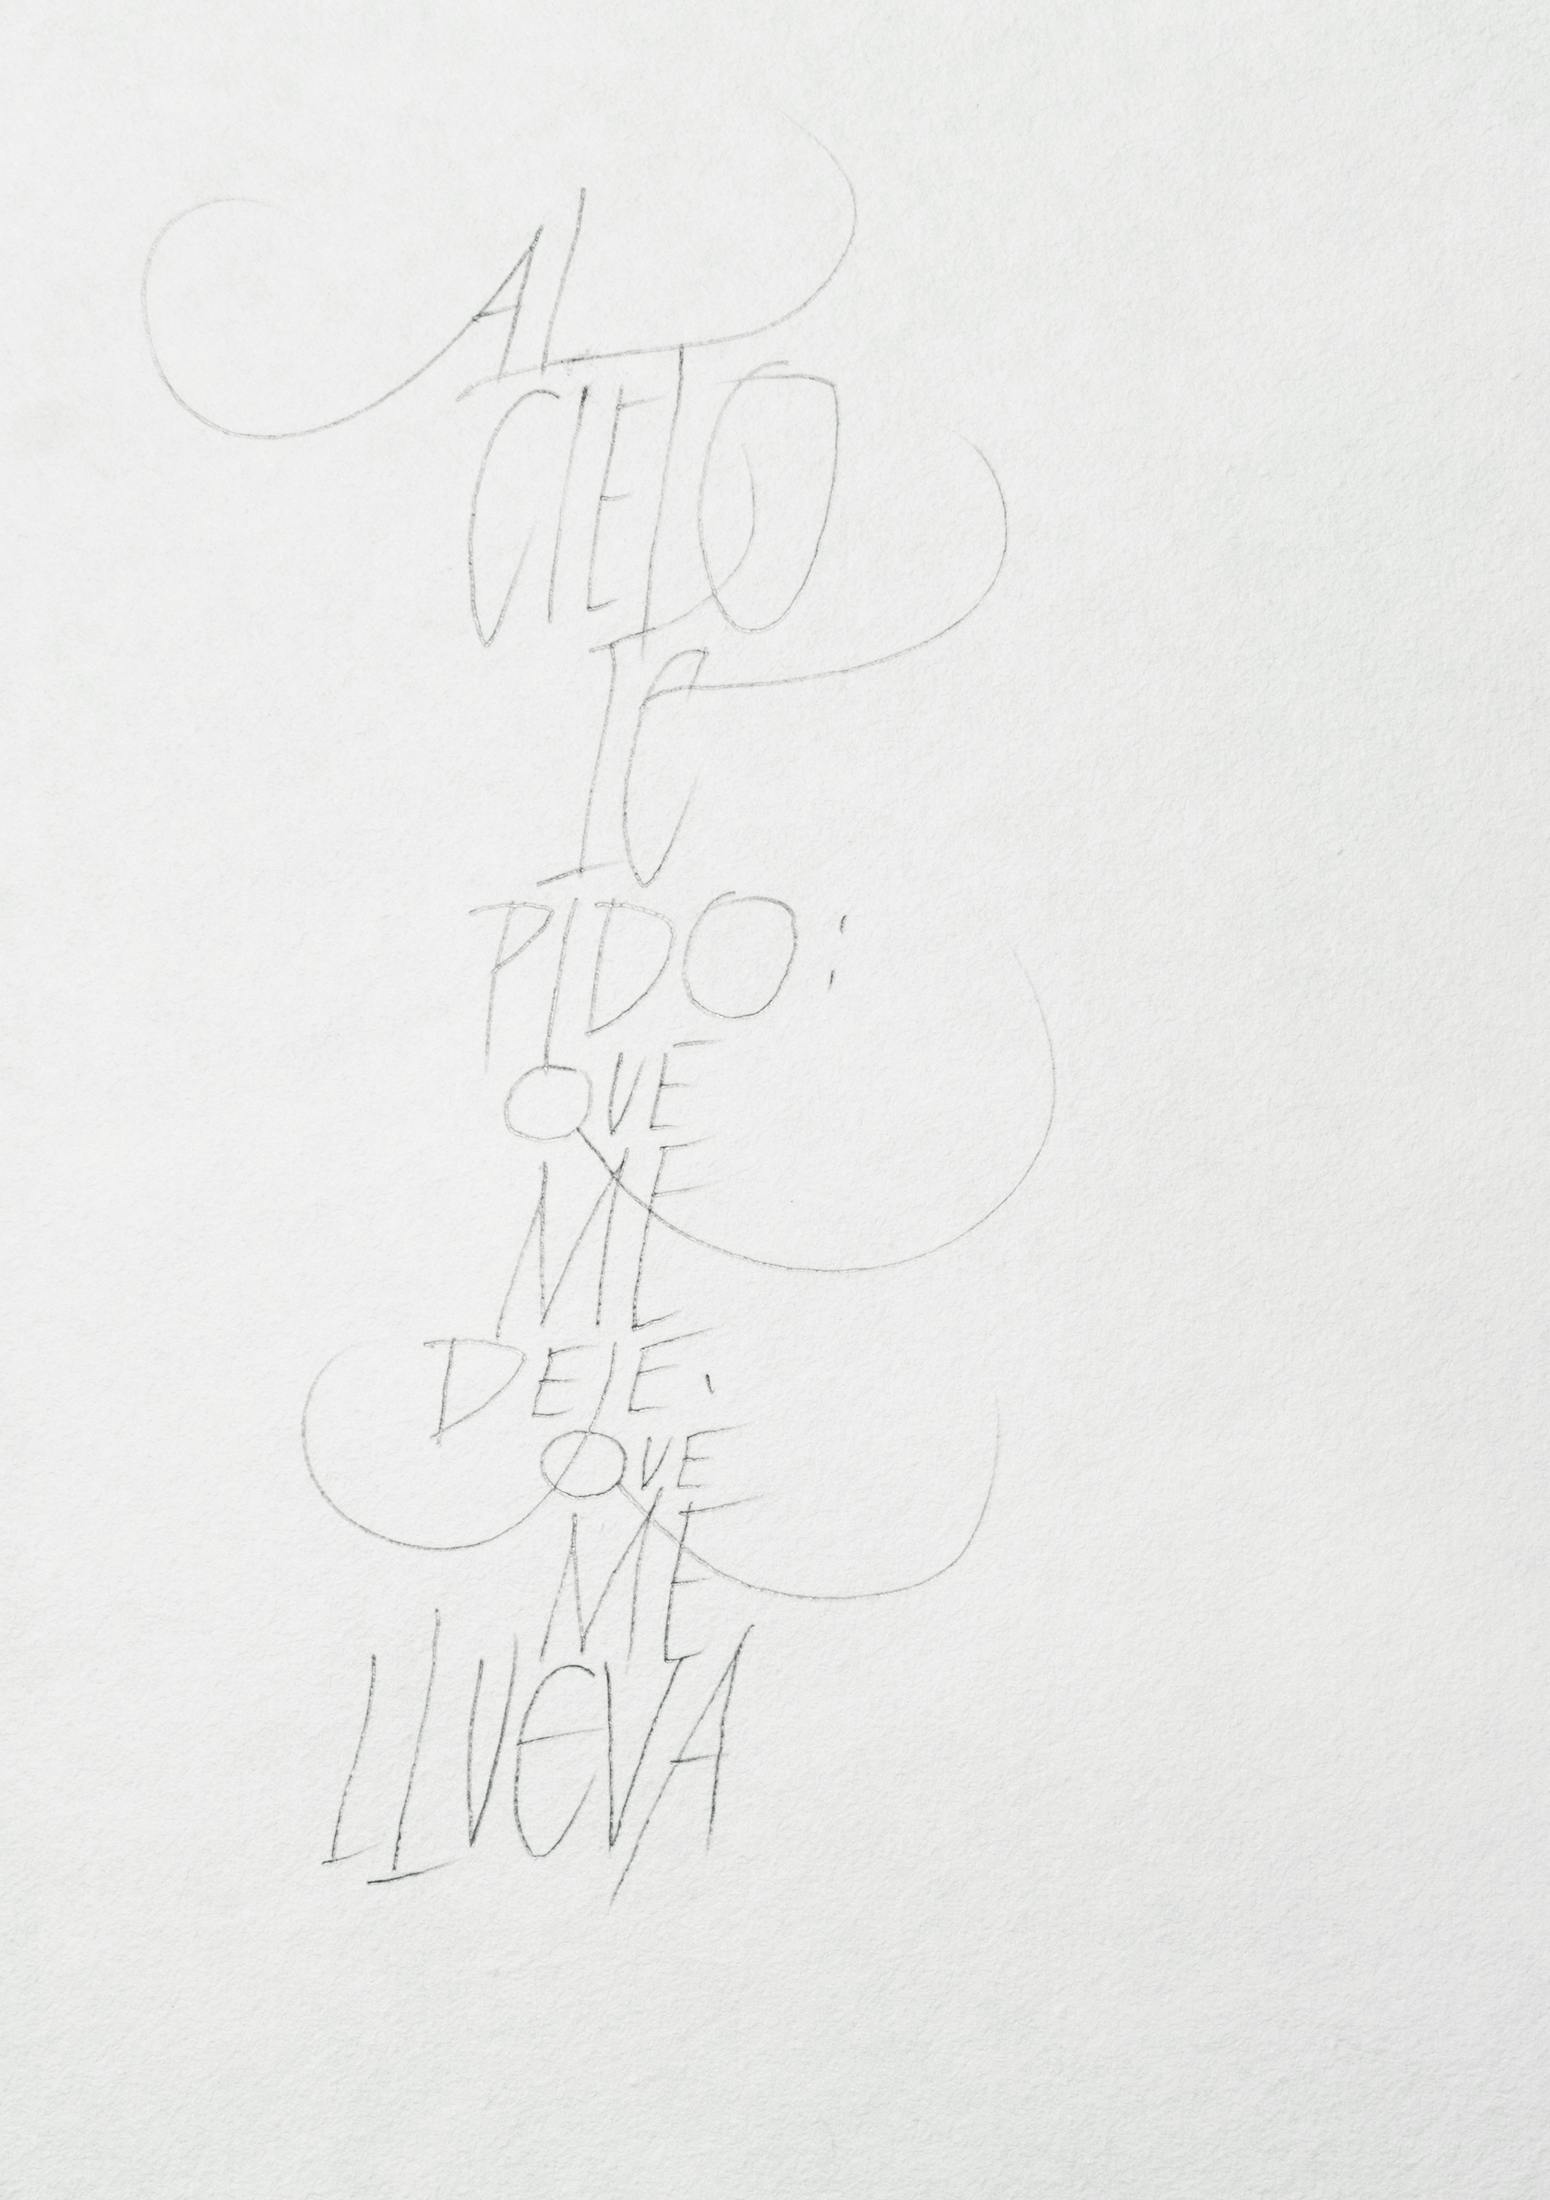 AL
CIELO
LE
PIDO:
QUE
ME
DEJE.
QUE
ME
LLUEVA